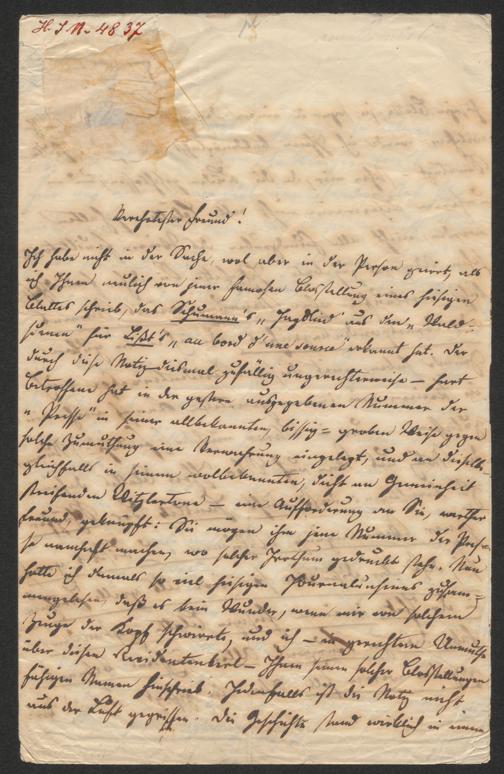 H. I. N. 4837
Verehrtester Freund!
Ich habe nicht in der Sache, wol aber in der Person geirrt, als
ich Ihnen neulich von jener famosen Blosstellung eines hiesigen
Blattes schrieb, das Schumann's „Jagdlied" aus den „Wald-
scenen" für Liszt's „au bord d'une source" erkannt hat. Der
durch diese Notiz diesmal zufällig ungerechterweise – hart
Betroffene hat in der gestern ausgegebenen Nummer der
„Presse" in seiner allbekannten, bissig-groben Weise gegen
solche Zumuthung eine Verwahrung eingelegt, und an dieselbe
gleichfalls in seinem wolbekannten, dicht an Gemeinheit
streifenden Witzlertone – eine Aufforderung an Sie, werther
Freund, geknüpft: Sie mögen ihm jene Nummer der Pres-
se namhaft machen, wo solcher Irrthum gedruckt stehe. Nun
hatte ich damals so viel hiesigen Journalunsinnes zusam-
mengelesen, daß es kein Wunder, wenn mir von solchem
Zeuge der Kopf schwirrte, und ich – im gerechten Unmuthe
über diesen – Ihnen seinen solcher Blosstellungen
fähigen Namen hinschrieb. Jedenfalls ist die Notiz nicht
aus der Luft gegriffen. Die Geschichte stand wirklich in einem